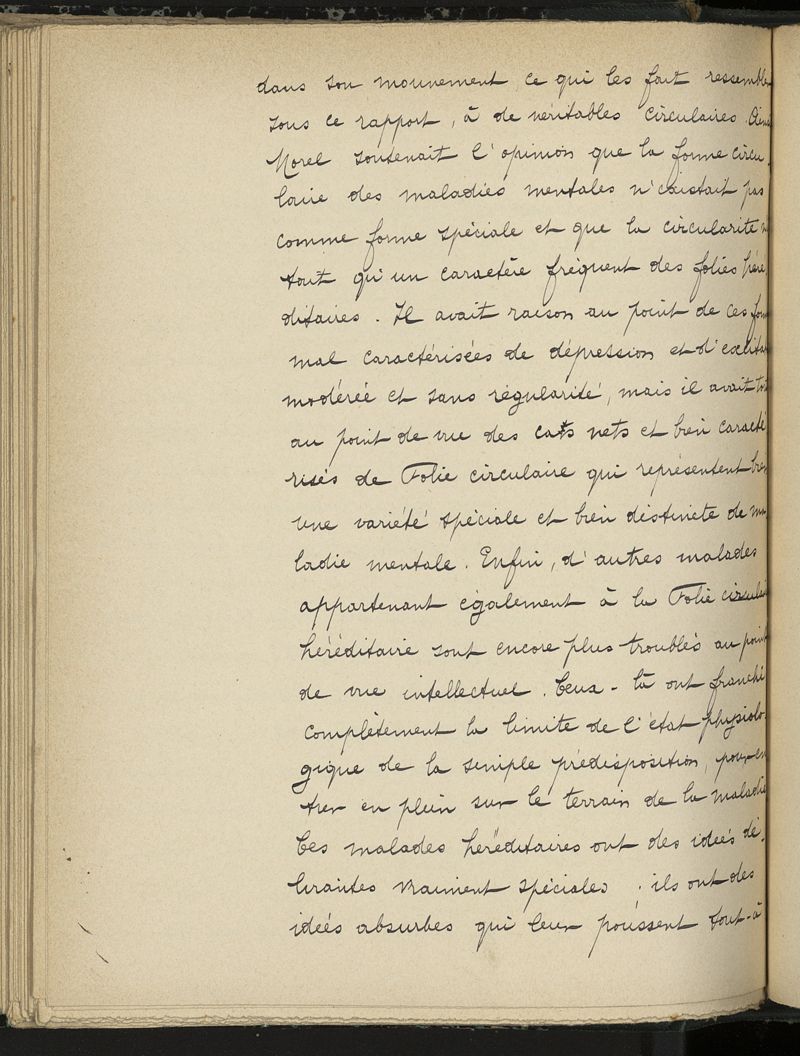 dans son mouvement, ce qui les fait ressemble
sous ce rapport, à de véritables circulaires.
Morel soutenait l'opinion que la forme circu
laire des maladies mentales n'existait pas
comme forme spéciale et que la circularité n
tout qu'un caractère fréquent des folies héré
ditaires. Il avait raison au point de ces for
mal caractérisées de dépression et d'excita
modérée et sans régularité, mais il avait tor
au point de vue des cas nets et bien caracté
risés de Folie circulaire qui représentent bien
une variété spéciale et bien distincte de ma
ladie mentale. Enfin, d'autres malades
appartenant également à la Folie circulai
héréditaire sont encore plus troublés au point
de vue intellectuel. Ceux-là ont franchi
complètement la limite de l'état physiolo-
gique de la simple prédisposition, pour en
trer en plein sur le terrain de la maladie
Ces malades héréditaires ont des idées dé-
lirantes vraiment spéciales. ils ont des
idées absurbes qui leur poussent tout-à